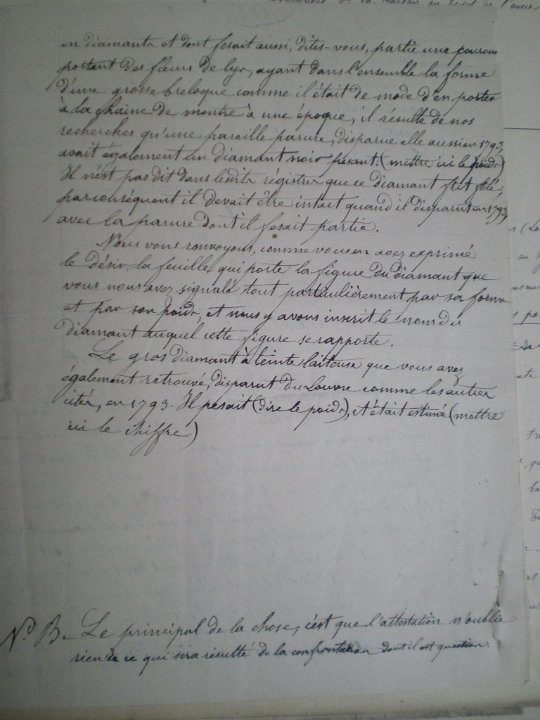 en diamants et dont fesait aussi, dites-vous, partie une couronne
portant des fleurs de lys, ayant dans l'ensemble la forme
d'une grosse breloque comme il était de mode d'en porter
à la chaîne de montre à une époque, il résulte de nos
recherches qu'une pareille parure, disparue elle aussi en 1793,
avait également un diamant noir pesant (mettre ici le poids)
Il n'est pas dit dans lesdits régistres que ce diamant fut
par conséquent il devait être intact quand il disparut en 1793
avec la parure dont il fesait partie.
Nous vous renvoyons, comme vous en avez exprimé
le désir, la feuille qui porte la figure du diamant que
vous nous avez signalé tout particulièrement par sa forme
et par son poids, et nous y avons inscrit le nom du
diamant auquel cette figure se rapporte.
Le gros diamant à teinte laiteuse que vous avez
également retrouvé, disparut du Louvre comme les autres
cités, en 1793. Il pesait (dire le poids), et était estimé (mettre
ici le chiffre.)
N. B. Le principal de la chose, c'est que l'attestation n'oublie
rien de ce qui sera résulté de la confrontation dont il est question.